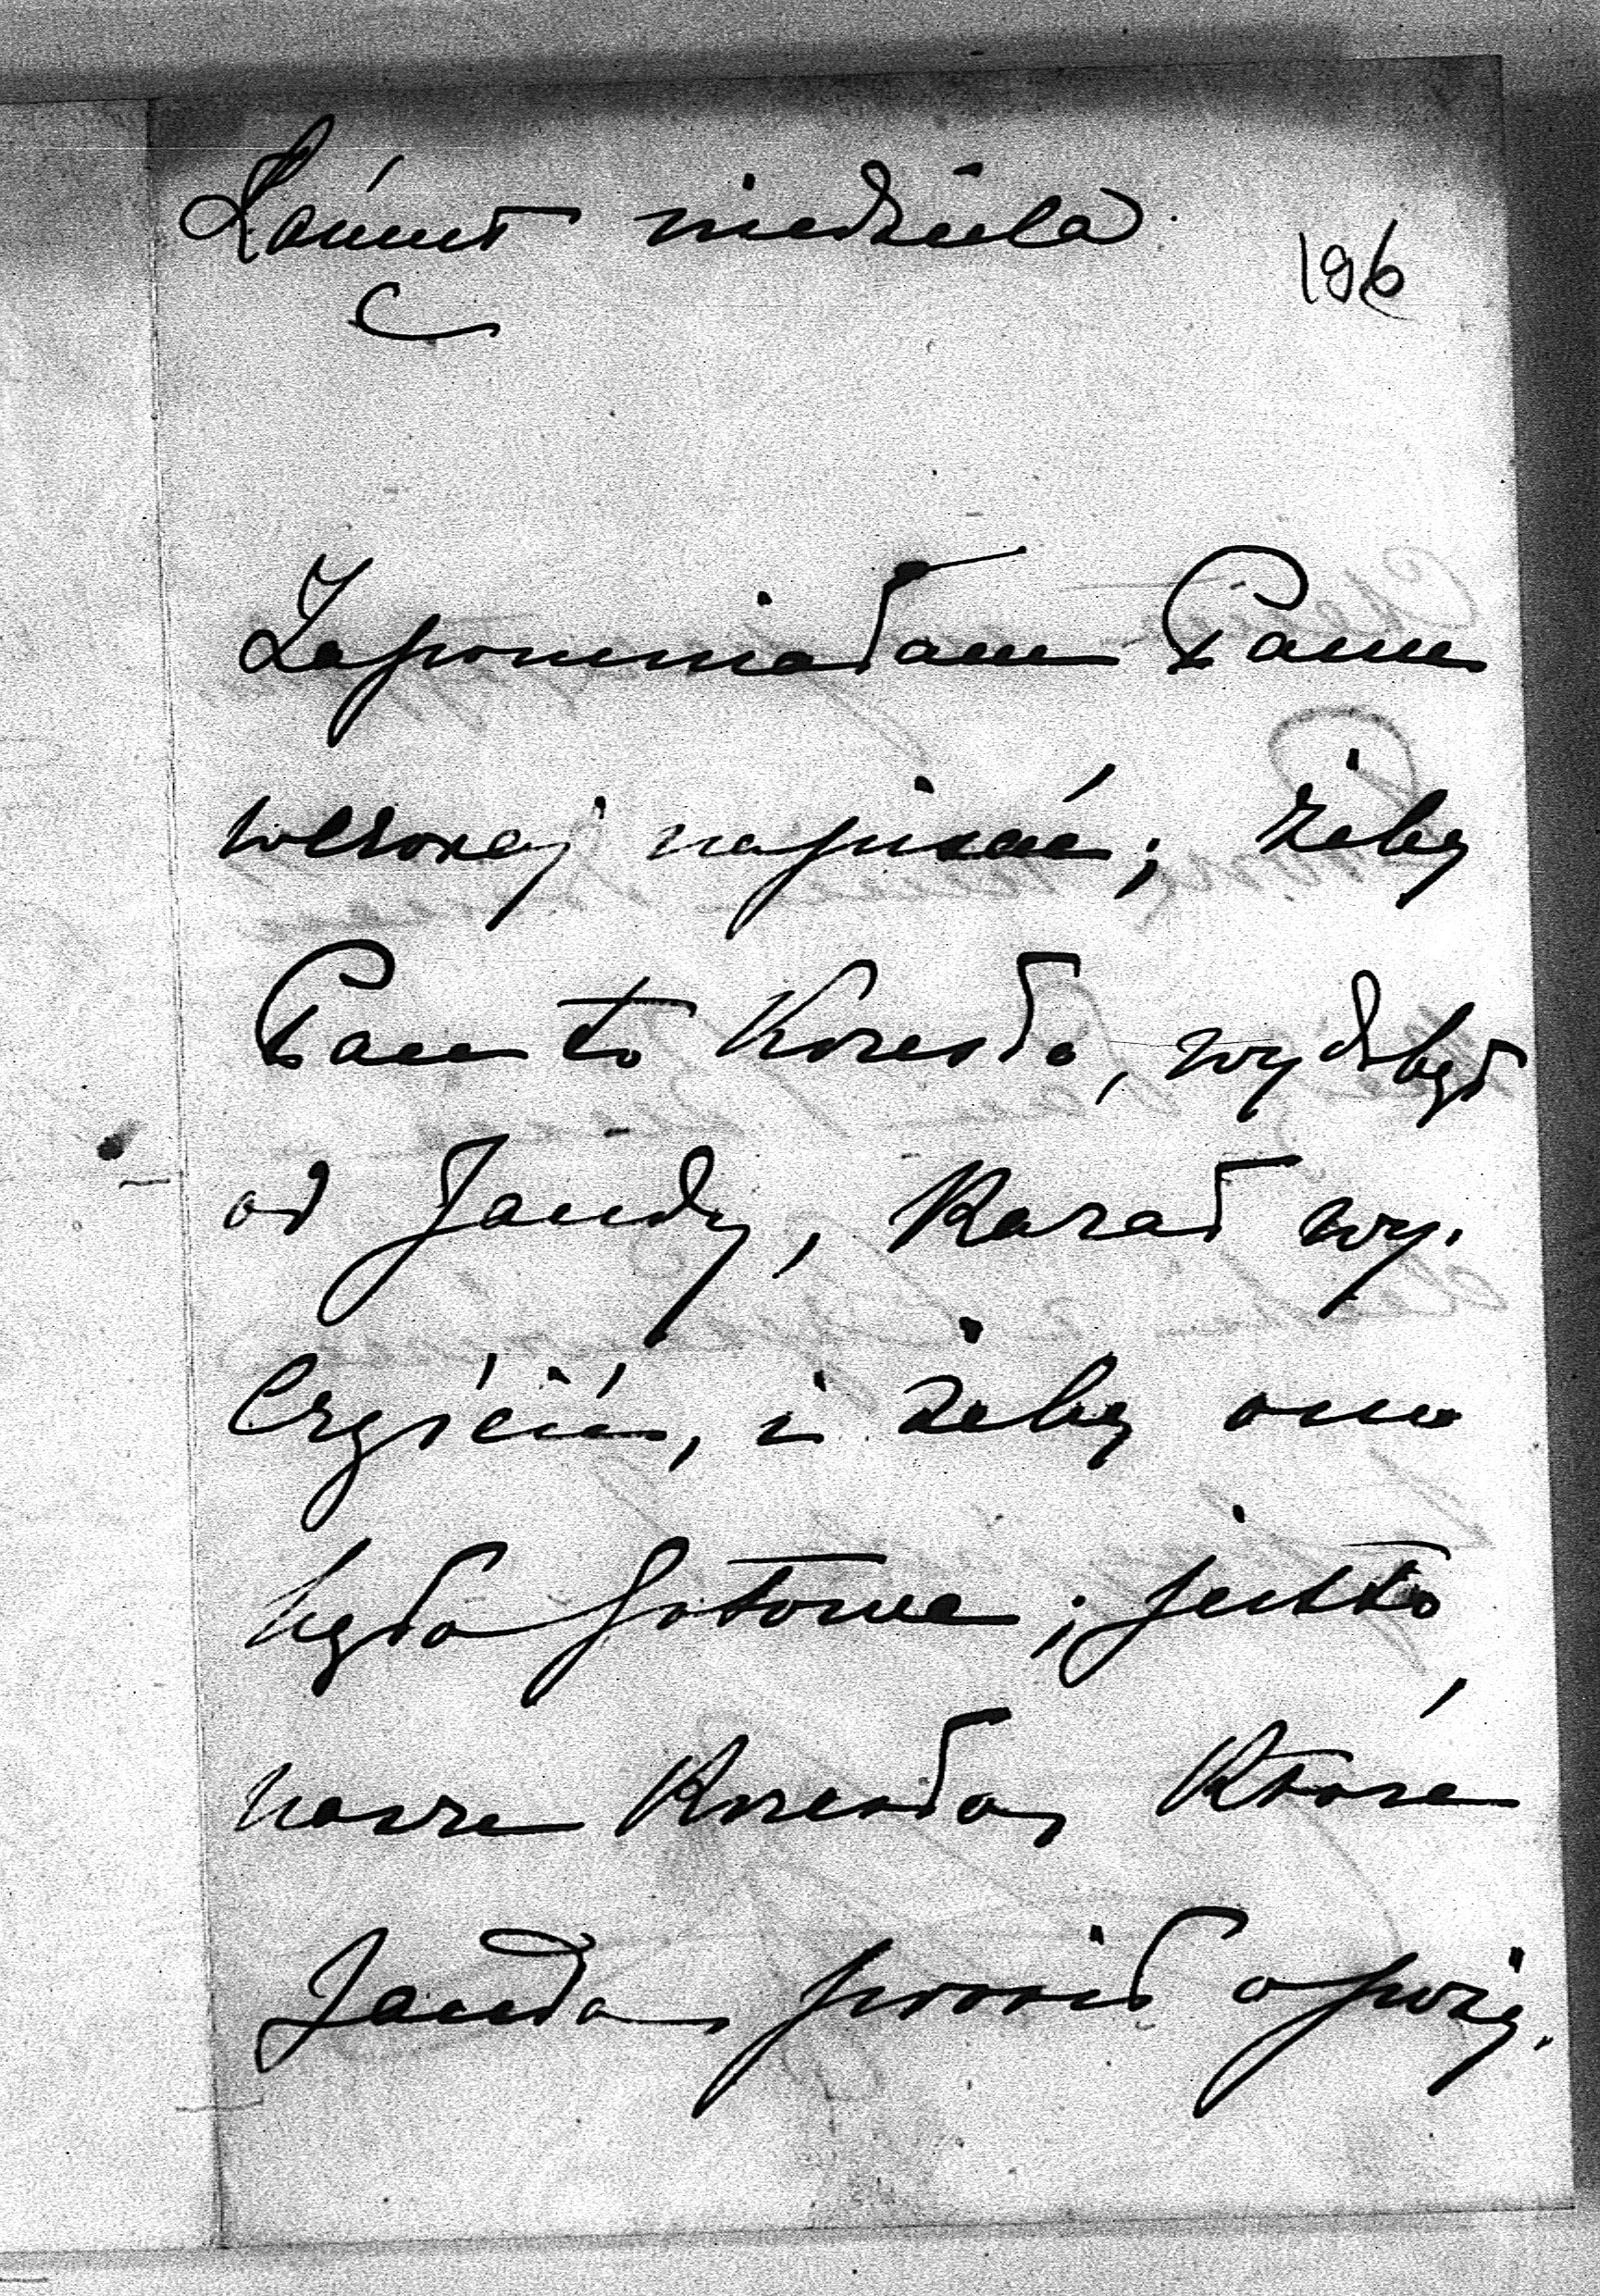 Łańcut niedziela
196
Zapomniałam Panu
wczoraj napisać; żeby
Pan to krzesło, wydobył
od Jandy, kazał wy-
czyścić, i żeby one
było gotowe; jest to
nasze krzesło, które
Janda prosił o poży-